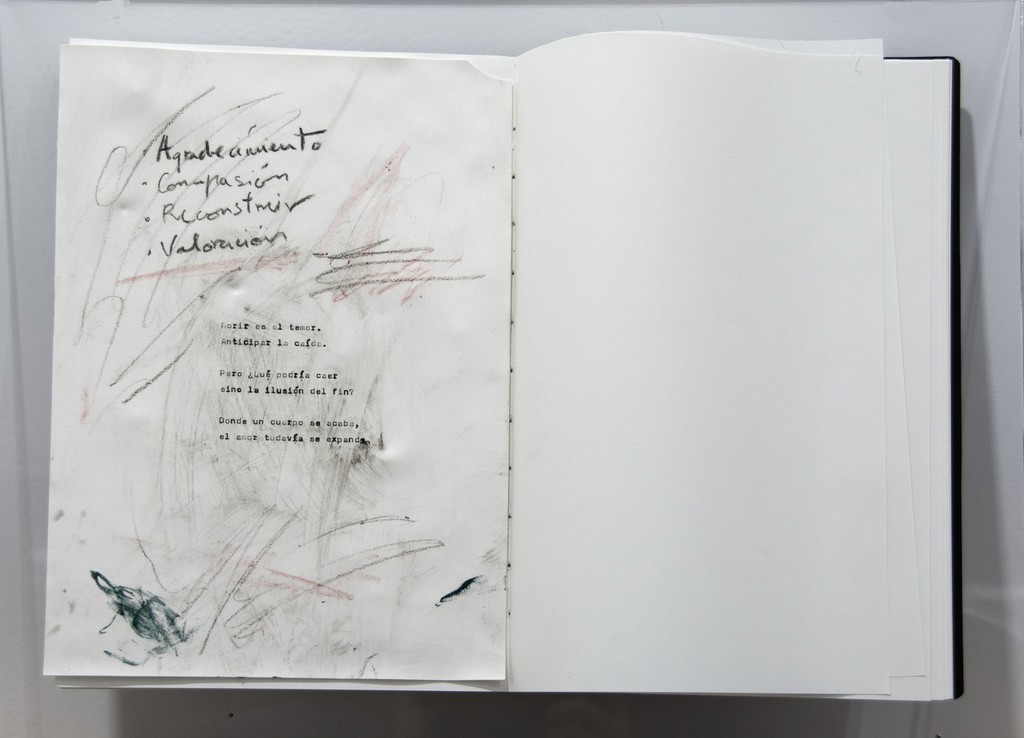 Agradecimiento
· Compasión
· Reconstruir
· Valoración
Morir es el temor.
Anticipar la caída.
Pero ¿qué podría caer
sino la ilusión del fin?
Donde un cuerpo se acaba,
el amor todavía se expande.